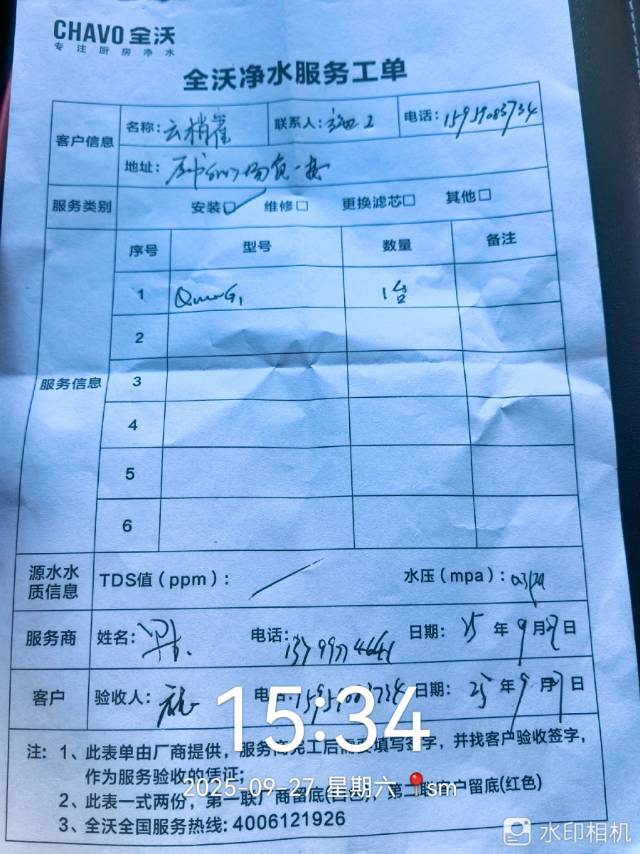 CHAVO 全沃
专注厨房净水
全沃净水服务工单
客户信息 名称: 联系人: 电话:15959083734
地址:
服务类别 安装□ 维修□ 更换滤芯□ 其他□
服务信息 序号 型号 数量 备注
1 1台
2
3
4
5
6
源水水质信息 TDS值（ppm）: 水压（mpa）:
服务商 姓名: 电话: 日期: 25 年 9 月 27 日
客户 验收人: 电话:15959083734 日期: 25 年 9 月 27 日
15:34
注: 1、此表单由厂商提供，服务商完工后需要填写签字，并找客户验收签字，
作为服务验收的凭证;
2025-09-27 星期六 sm
2、此表一式两份，第一联厂商留底(白色)，第二联客户留底(红色)
3、全沃全国服务热线: 4006121926
水印相机